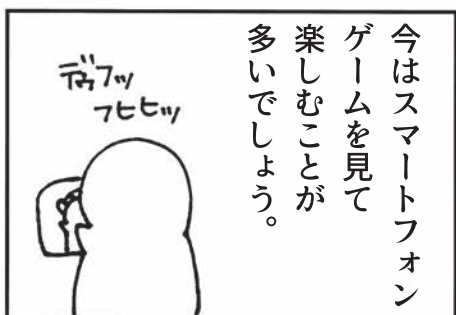 今はスマートフォン
ゲームを見て
楽しむことが
多いでしょう。
デゥフッ
フヒヒッ